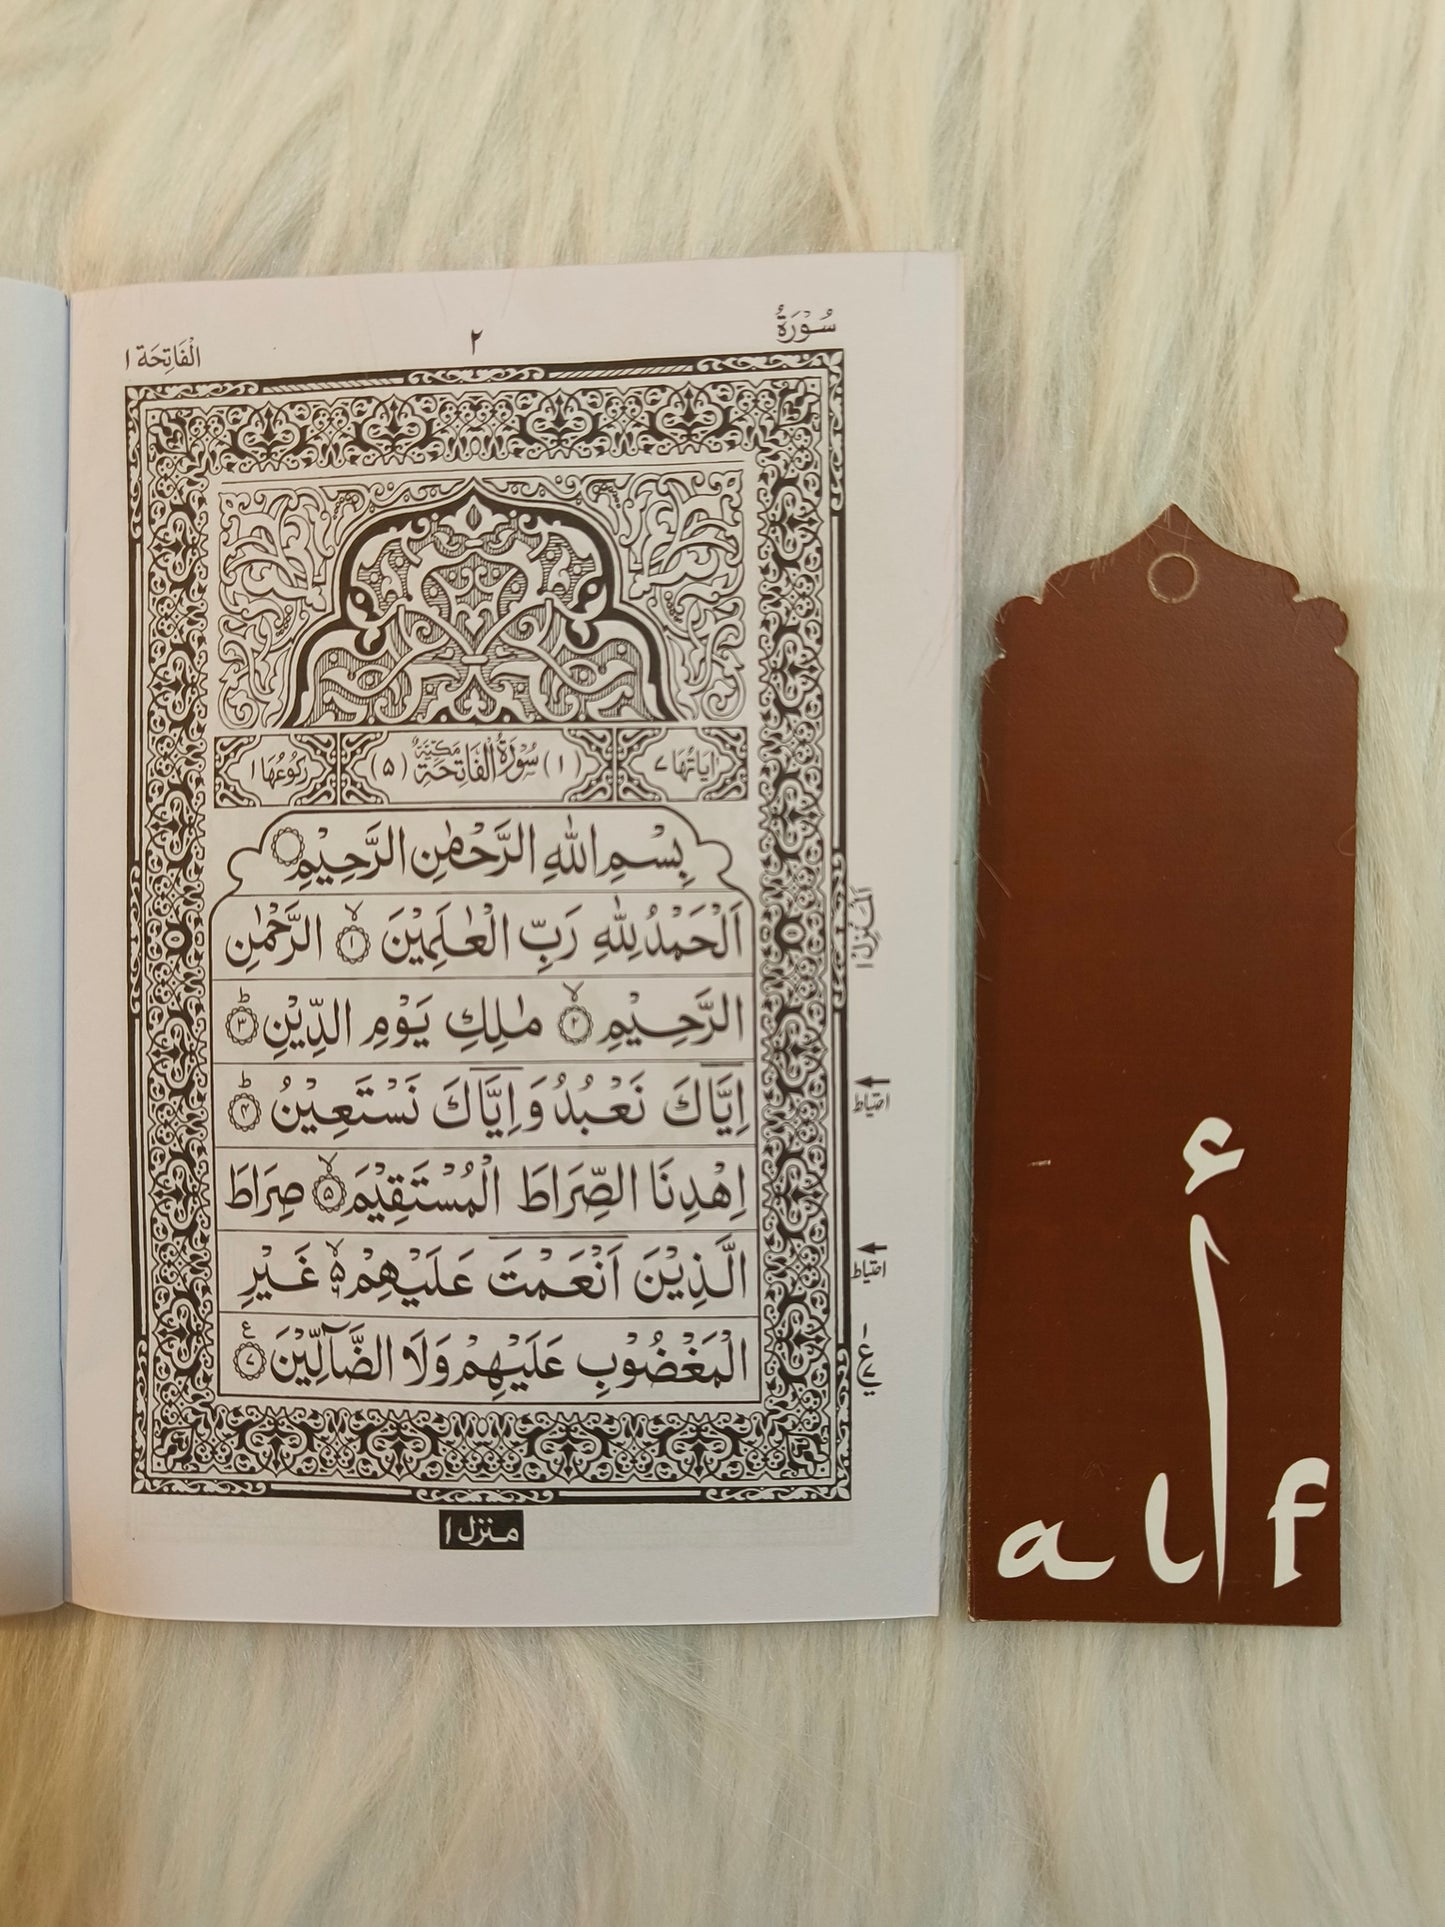 سُوْرَةُ
٢
الْفَاتِحَة ١
اٰيَاتُهَا ٧
(١) سُوْرَةُ الْفَاتِحَةِ مَكِّيَّةٌ (٥)
رُكُوْعُهَا ١
بِسْمِ اللّٰهِ الرَّحْمٰنِ الرَّحِيْمِ
اَلْحَمْدُ لِلّٰهِ رَبِّ الْعٰلَمِيْنَ ۙ﴿١﴾ الرَّحْمٰنِ
الرَّحِيْمِ ۙ﴿٢﴾ مٰلِكِ يَوْمِ الدِّيْنِ ؕ﴿٣﴾
اِيَّاكَ نَعْبُدُ وَ اِيَّاكَ نَسْتَعِيْنُ ؕ﴿٤﴾
اِهْدِنَا الصِّرَاطَ الْمُسْتَقِيْمَ ۙ﴿٥﴾ صِرَاطَ
الَّذِيْنَ اَنْعَمْتَ عَلَيْهِمْ ۙ۵ غَيْرِ
الْمَغْضُوْبِ عَلَيْهِمْ وَلَا الضَّآلِّيْنَ ﴿٧﴾ ع
اَلْمَنْزِل ١
احتياط
احتياط
منزل ١
أ
alf